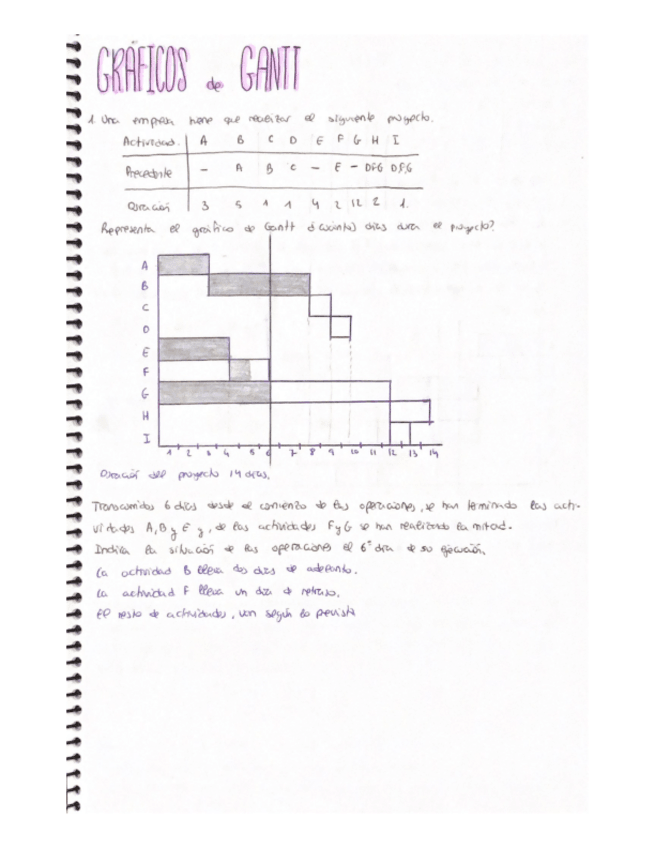 GRÁFICOS de GANTT
1. Una empresa tiene que realizar el siguiente proyecto.
Actividad. A B C D E F G H I
Precedente - A B C - E - DFG DFG
Duración 3 5 1 1 4 2 12 2 1.
Representa el gráfico de Gantt ¿cuántos días dura el proyecto?
A
B
C
D
E
F
G
H
I
1 2 3 4 5 6 7 8 9 10 11 12 13 14
Duración del proyecto 14 días.
Transcurridos 6 días desde el comienzo de las operaciones, se han terminado las acti-
vidades A, B y E y, de las actividades F y G se han realizado la mitad.
Indica la situación de las operaciones el 6º día de su ejecución.
La actividad B lleva dos días de adelanto.
La actividad F lleva un día de retraso.
El resto de actividades, van según lo previsto